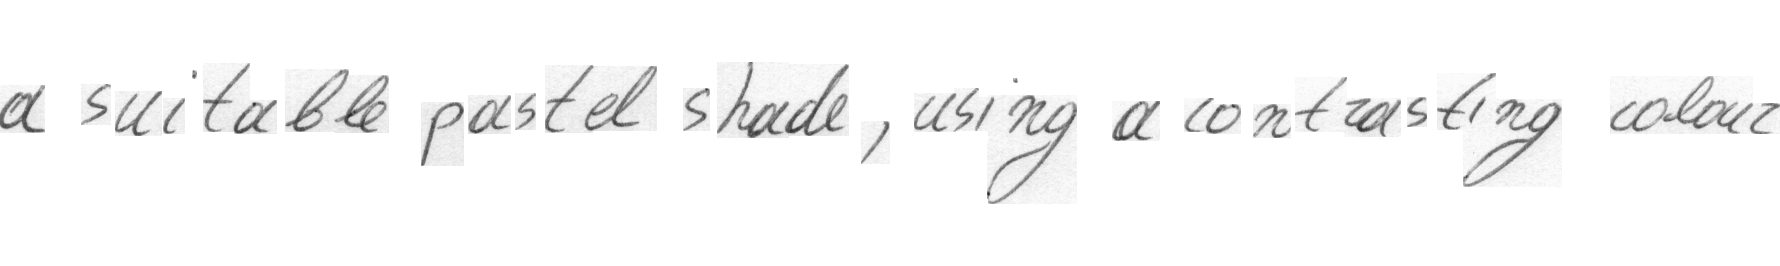 a suitable pastel shade, using a contrasting colour